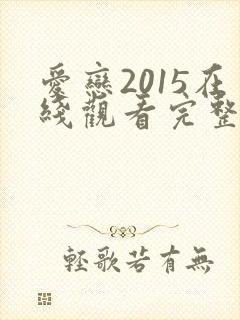 愛戀2015在
綫觀看完整
輕歌若有無